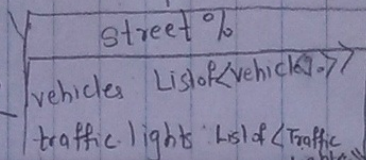 street %
vehicles Listof<vehicle>
traffic lights Listof<Traffic